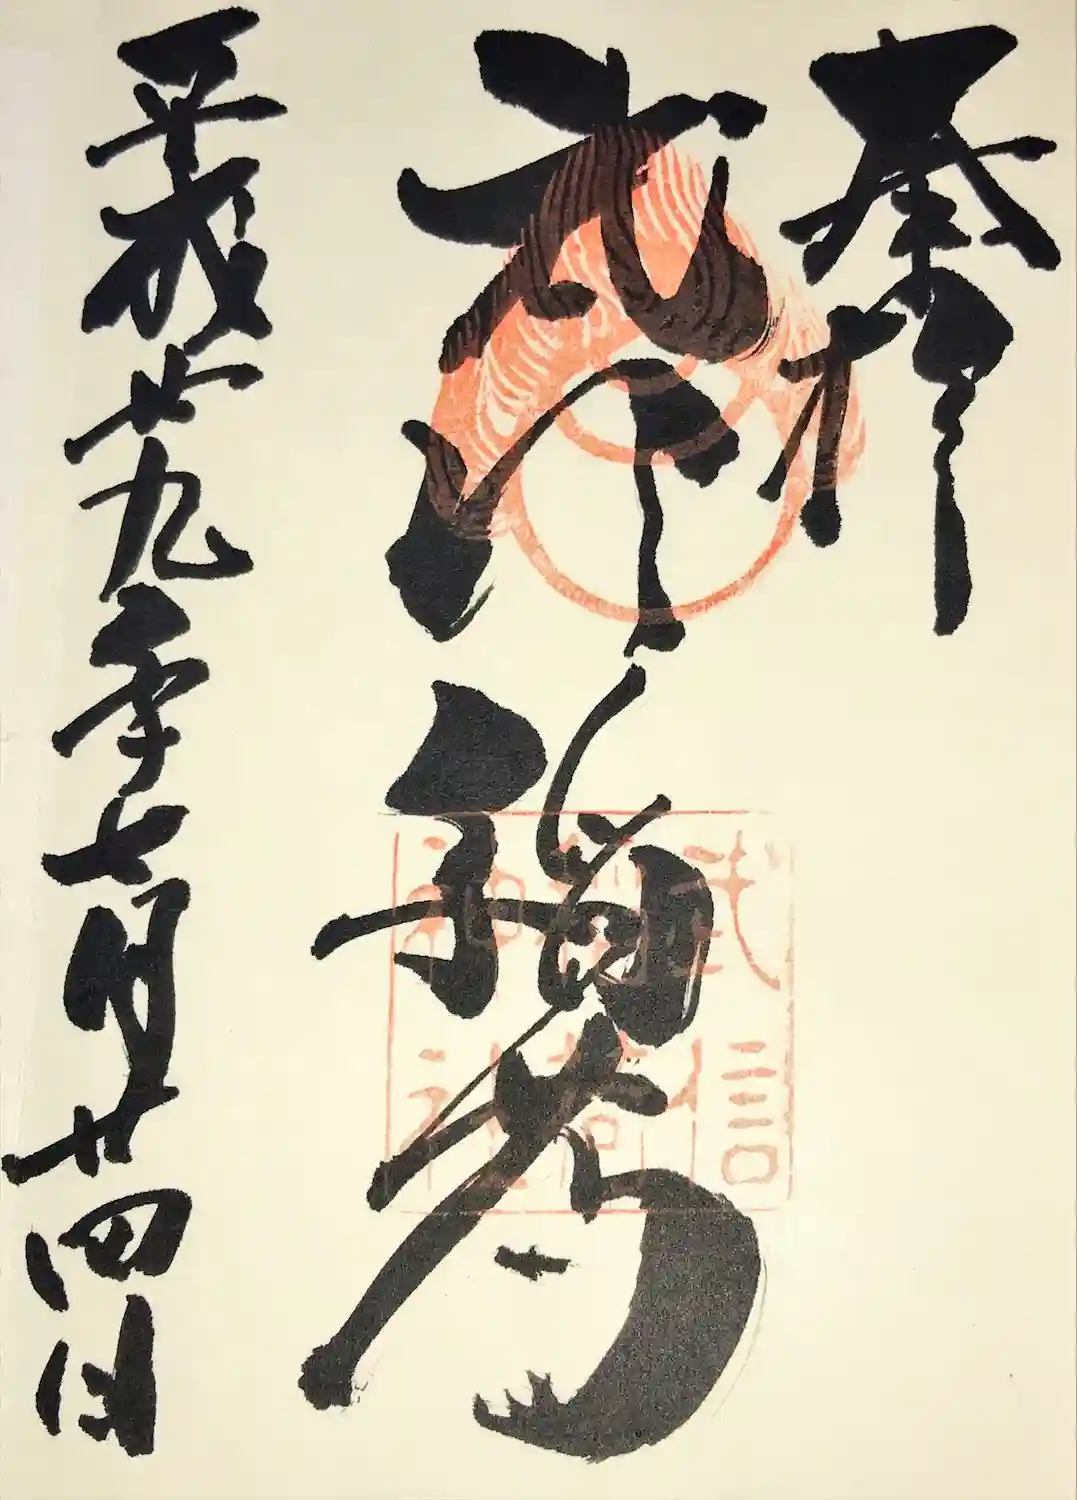 奉拝
武信稲荷
平成廿九年七月廿四日
武信
稲荷
神社